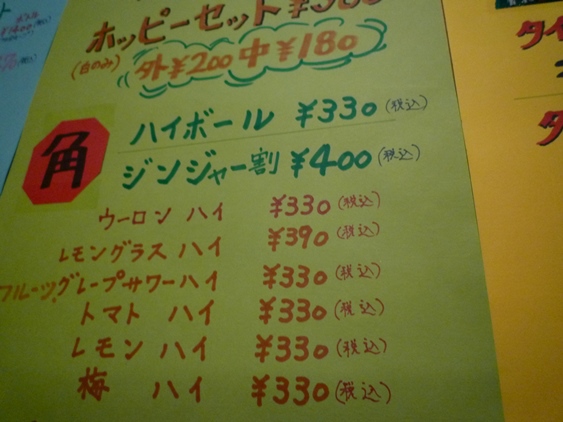 ホッピーセット
(白のみ) 外¥200 中¥180
角
ハイボール ¥330(税込)
ジンジャー割 ¥400(税込)
ウーロンハイ ¥330(税込)
レモングラスハイ ¥390(税込)
フルーツグレープサワーハイ ¥330(税込)
トマトハイ ¥330(税込)
レモンハイ ¥330(税込)
梅ハイ ¥330(税込)
タイ